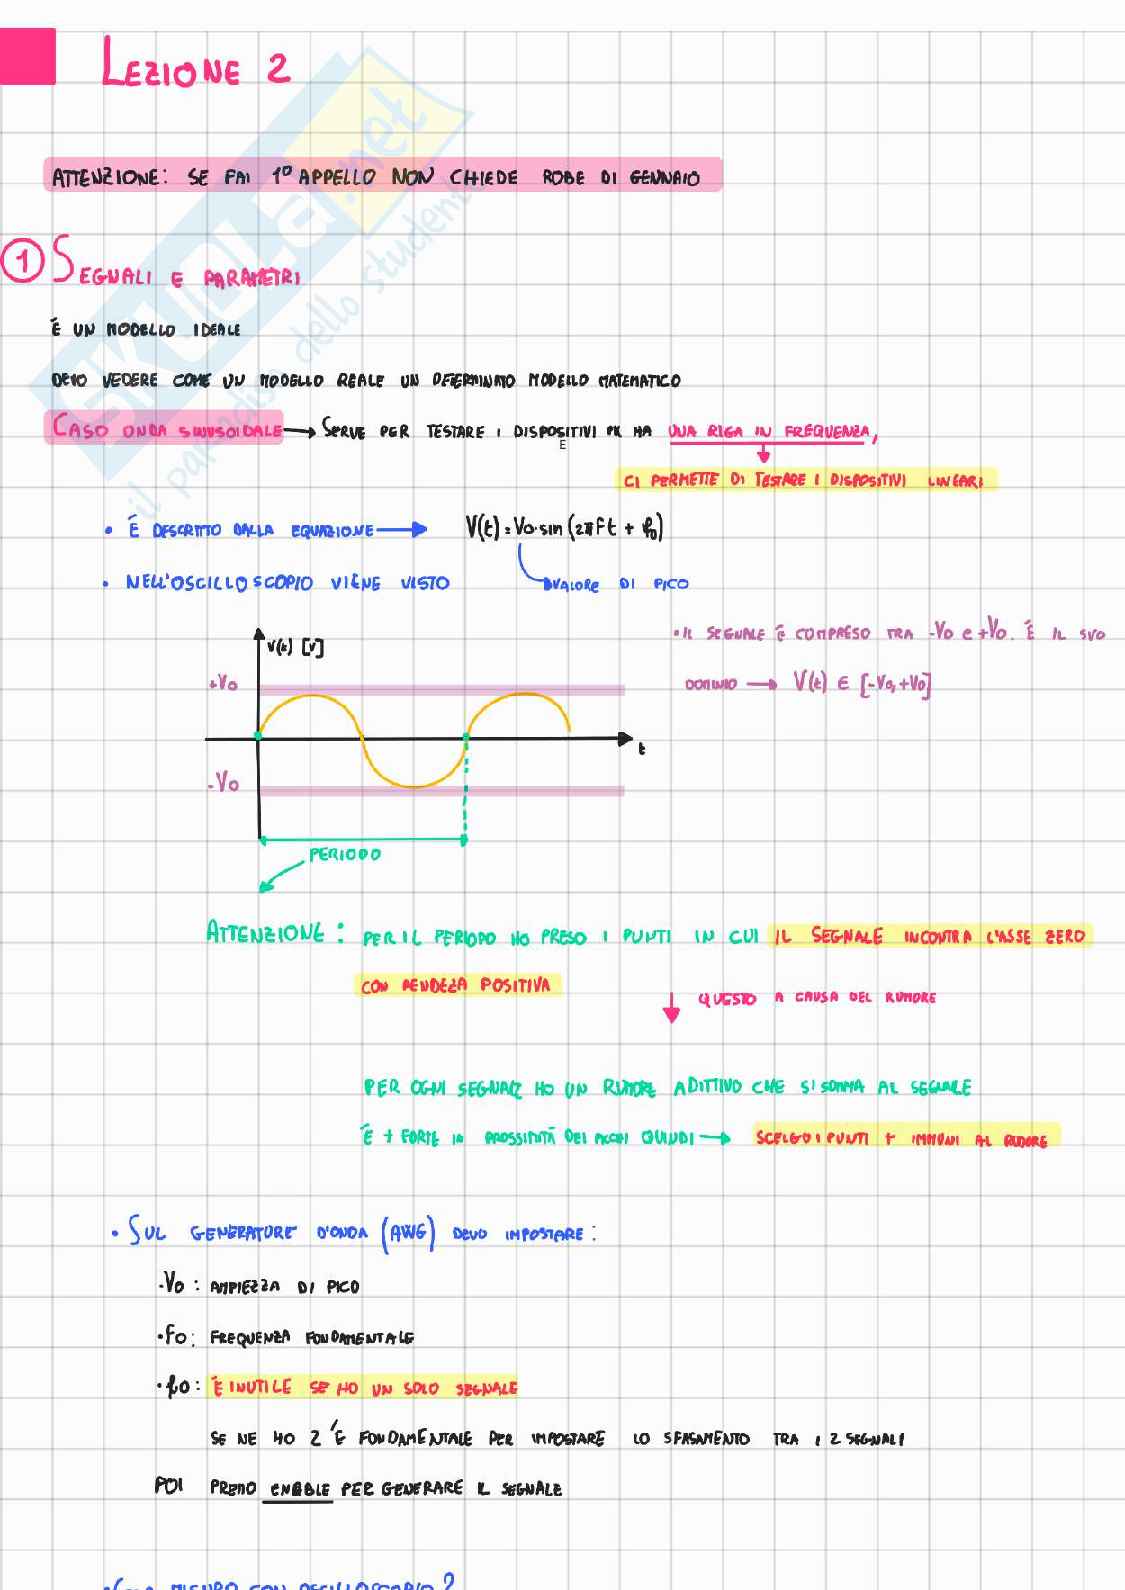 LEZIONE 2
ATTENZIONE: SE FAI 1° APPELLO NON CHIEDE ROBE DI GENNAIO
1 SEGNALI E PARAMETRI
È UN MODELLO IDEALE
DEVO VEDERE COME UN MODELLO REALE UN DETERMINATO MODELLO MATEMATICO
CASO ONDA SINUSOIDALE → SERVE PER TESTARE I DISPOSITIVI PK HA UNA RIGA IN FREQUENZA,
E
CI PERMETTE DI TESTARE I DISPOSITIVI LINEARI
• È DESCRITTO DALLA EQUAZIONE → V(t) = Vo·sin (2πft + φ0)
• NELL'OSCILLOSCOPIO VIENE VISTO
VALORE DI PICO
• IL SEGNALE È COMPRESO TRA -Vo e +Vo. È IL SUO
DOMINIO → V(t) ∈ [-Vo,+Vo]
V(t) [V]
+Vo
t
-Vo
PERIODO
ATTENZIONE: PER IL PERIODO HO PRESO I PUNTI IN CUI IL SEGNALE INCONTRA L'ASSE ZERO
CON PENDEZA POSITIVA
QUESTO A CAUSA DEL RUMORE
PER OGNI SEGNALE HO UN RUMORE ADITTIVO CHE SI SOMMA AL SEGNALE
È + FORTE IN PROSSIMITÀ DEI PICCHI QUINDI → SCELGO I PUNTI + IMMUNI AL RUMORE
• SUL GENERATORE D'ONDA (AWG) DEVO IMPOSTARE:
·Vo: AMPIEZZA DI PICO
·Fo: FREQUENZA FONDAMENTALE
·φo: È INUTILE SE HO UN SOLO SEGNALE
SE NE HO 2 È FONDAMENTALE PER IMPOSTARE LO SFASAMENTO TRA I 2 SEGNALI
POI PREMO ENABLE PER GENERARE IL SEGNALE
MISURO CON OSCILLOSCOPIO?
SKUOLA.net
il paradiso dello studente